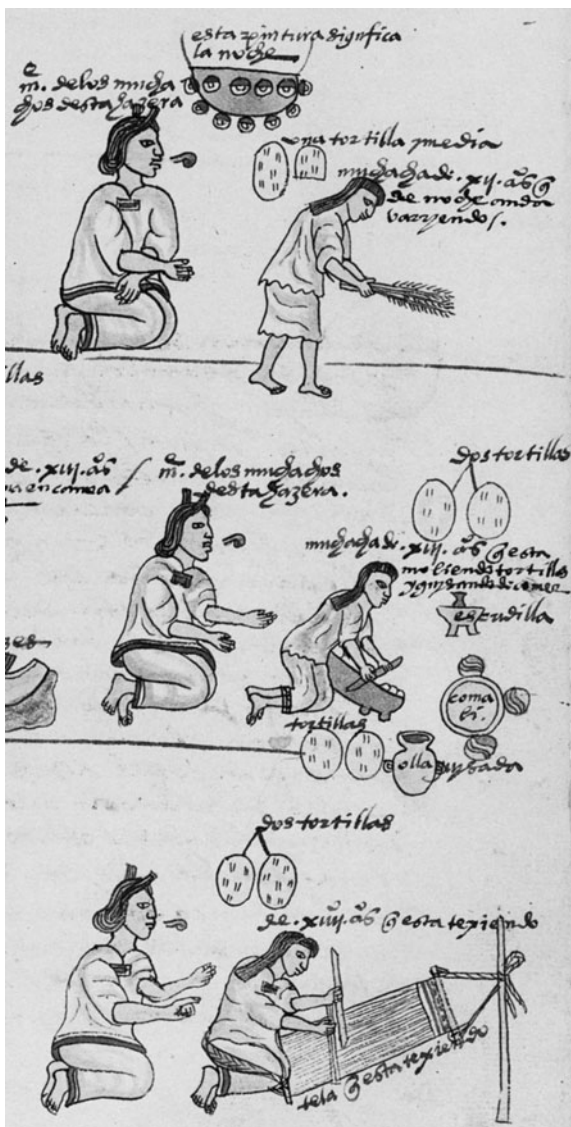 esta pintura significa
la noche
e
m. de los mucha
chos desta hazera
una tortilla y media
muchacha de .xij. aºs q̃
de noche anda
varriendo /.
llas
de .xiij. aºs
en canoa /
m.e de los muchachos
desta hazera.
dos tortillas
muchacha de .xiij. aºs q̃ esta
moliendo tortillas
y guisando de comer
escudilla
coma
li.
tortillas
olla
guisada
dos tortillas
de .xiiij. aºs q̃ esta texiendo
tela q̃ esta texiendo